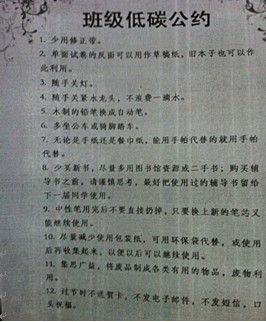 班级低碳公约
1. 少用修正带。
2. 单面试卷的反面可以用作草稿纸,旧本子也可以作
此利用。
3. 随手关灯。
4. 随手关紧水龙头,不浪费一滴水。
5. 木制的铅笔换成自动笔。
6. 多坐公车或骑脚踏车。
7. 无论是手纸还是餐巾纸,能用手帕代替的就用手帕
代替。
8. 少买新书,尽量多用图书馆资源或二手书;购买辅
导书之前,请谨慎思考,最好把使用过的辅导书留给
下一届同学使用。
9. 中性笔用完后不要直接扔掉,只要换上新的笔芯又
能继续使用。
10. 尽量减少使用包装纸,可用环保袋代替,或使用
后再收集起来,以便以后可以继续使用。
11. 集思广益,将废品制成各类有用的物品,废物利
用。
12. 过节时不送贺卡,不发电子邮件,不发短信,口
头祝福。